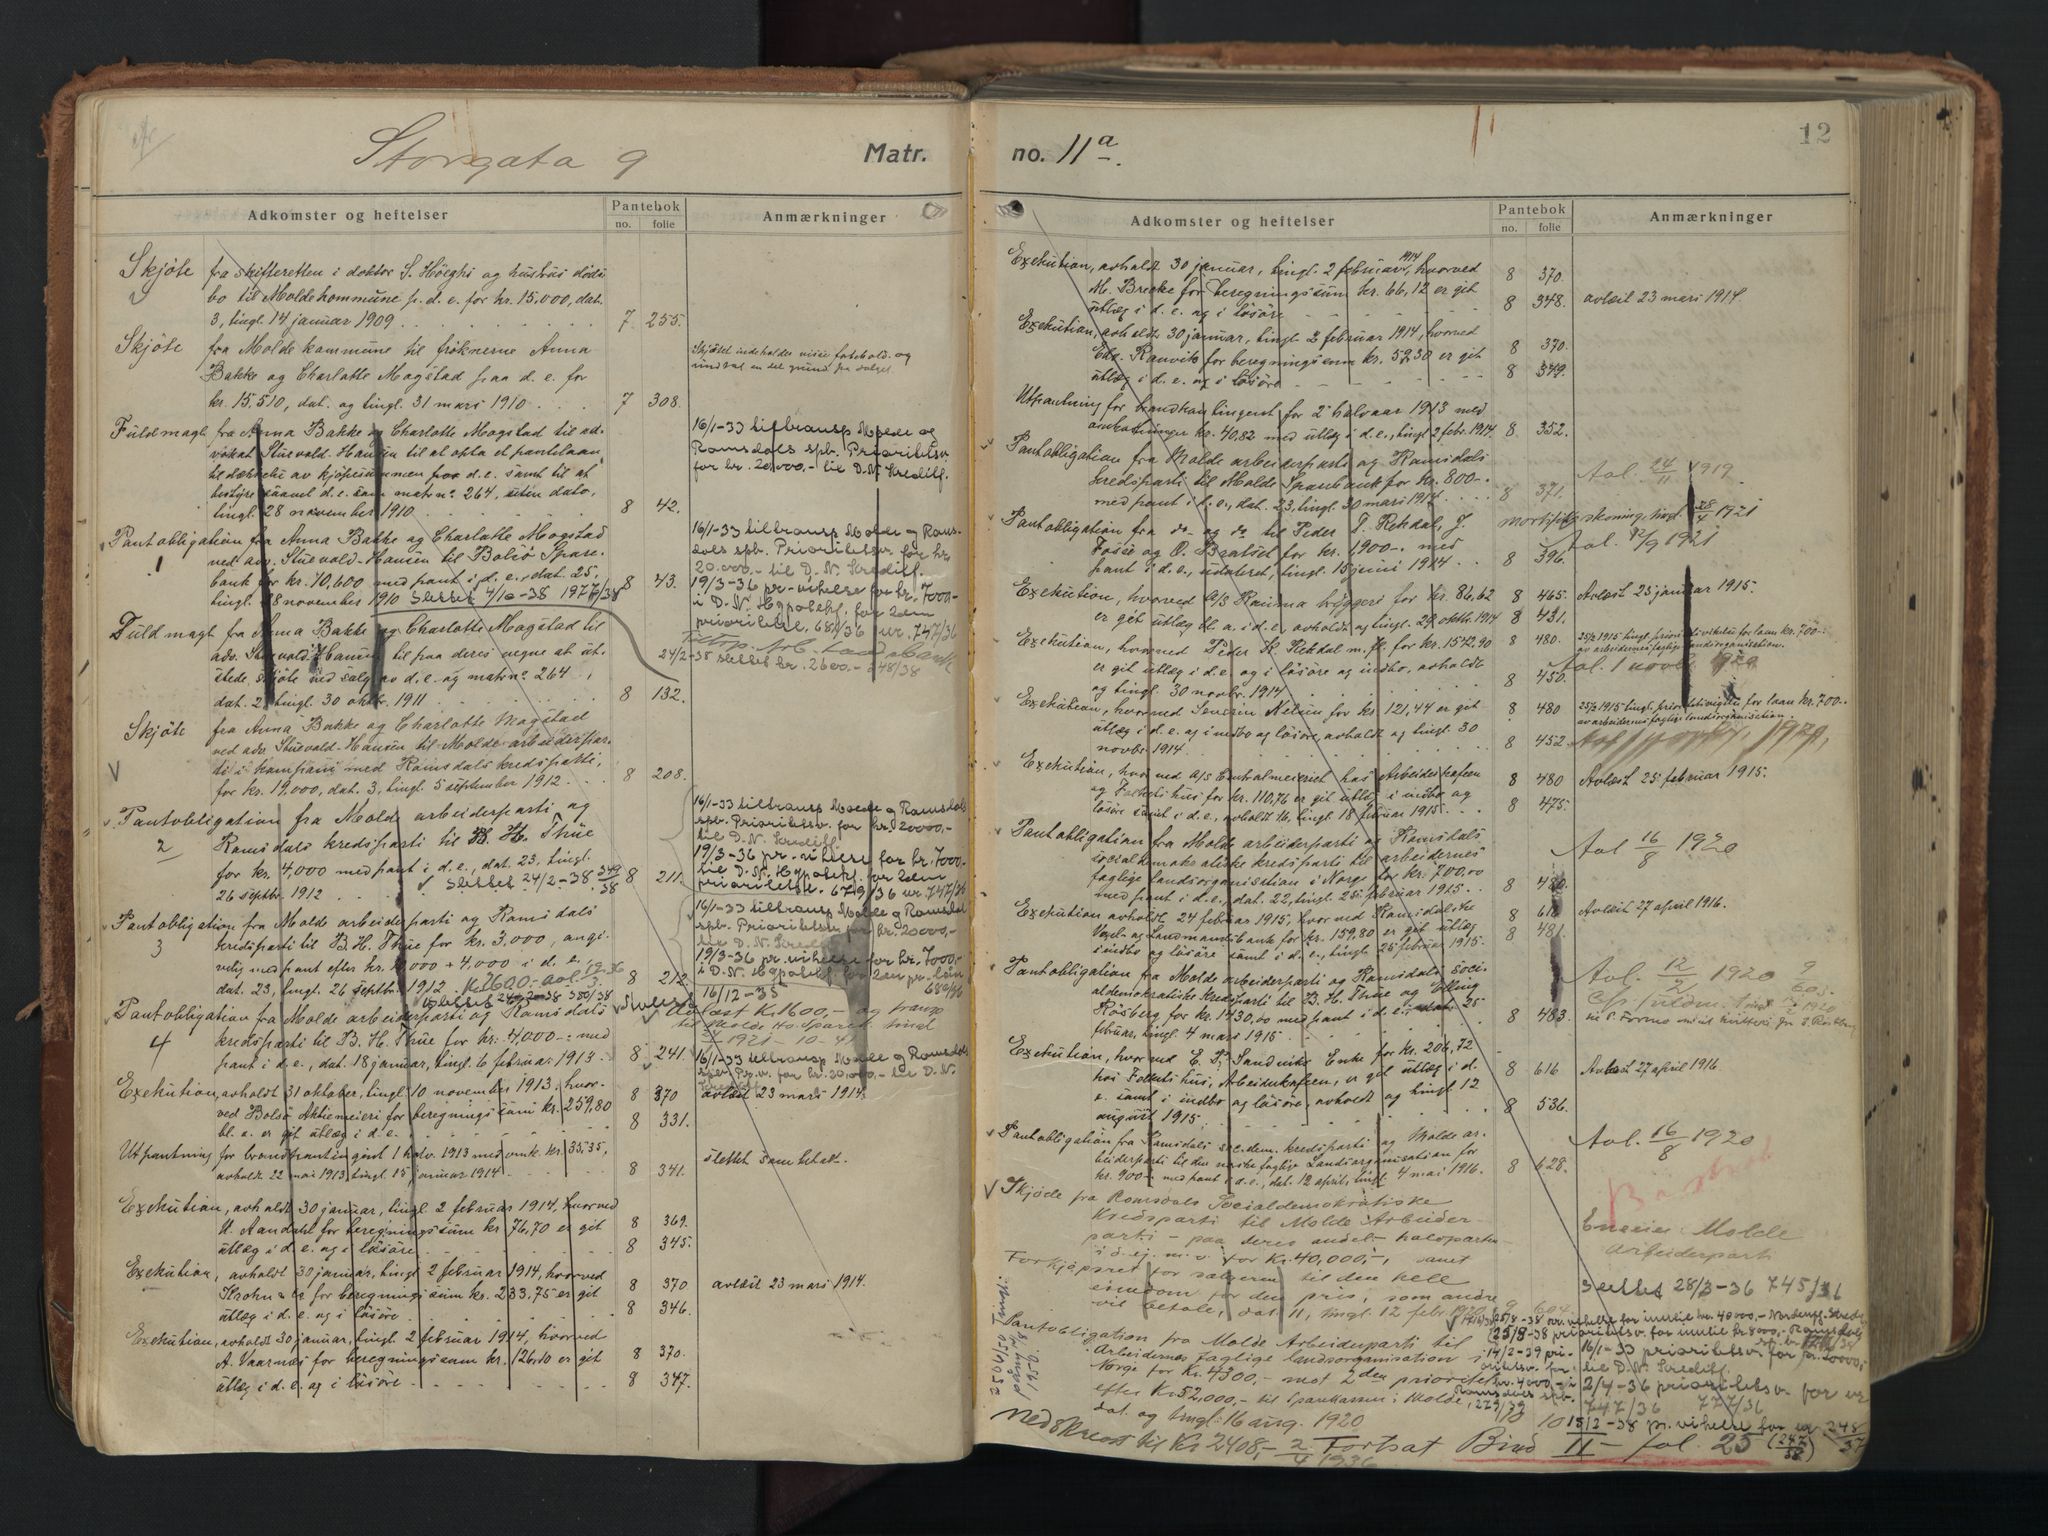 Storgata 9
Matr.
Adkomster og heftelser
Pantebok
no. folie
Anmærkninger
Skjöte fra skifteretten i doktor S. Höeghs og hustrus döds
bo til Molde kommune p. d. e. for kr. 15,000, dat.
3, tingl. 14 januar 1909 7 255.
Skjöte fra Molde kommune til fröknerne Anna
Bakke og Charlotte Mogstad paa d. e. for
kr. 15,510, dat. og tingl. 31 mars 1910 7 308.
Skjötet indeholder visse forbehold og
undtat en del grund fra salget
Fuldmagt fra Anna Bakke og Charlotte Mogstad til ad-
vokat Stuevold-Hansen til at opta et pantelaan
til dækkelse av kjöpesummen for d. e. samt til at
bestyre saavel d. e. som matr. nº 264, uten dato,
tingl. 28 november 1910 8 42.
16/1-33 tiltransp Molde og
Romsdals spb. Prioritetsv.
for kr. 20000,- til D. N. Kreditf.
Pantobligation fra Anna Bakke og Charlotte Mogstad
1 ved adv. Stuevold-Hansen til Bolsö Spare-
bank for kr. 10,600 med pant i d. e., dat. 25,
tingl. 28 november 1910 Slettet 4/10-38 1977/38 8 43.
16/1-33 tiltransp Molde og Roms-
dals spb. Prioritetsv for kr.
20.000,- til D. N. Kreditf.
19/3-36 pr. vikelse for kr. 7000-
i D. N. Hypotekf. for 2den
prioritet. 681/36 nr. 747/36
24/2-38 slettet kr. 2600.- 348/38
Fuldmagt fra Anna Bakke og Charlotte Mogstad til
adv. Stuevold-Hansen til paa deres vegne at ut-
stede skjöte ved salg av d. e. og matr. nº 264,
dat. 2, tingl. 30 oktbr. 1911 8 132.
Skjöte fra Anna Bakke og Charlotte Mogstad
ved adv. Stuevold-Hansen til Molde arbeiderpar-
ti i kompani med Romsdals kredsparti,
for kr. 19,000, dat. 3, tingl. 5 september 1912. 8 208.
Pantobligation fra Molde arbeiderparti og
2 Romsdals kredsparti til B. H. Thüe
for kr. 4,000 med pant i d. e., dat. 23, tingl.
26 septbr. 1912 Slettet 24/2-38 349/38 8 211.
16/1-33 tiltransp Molde og Romsdals
spb. Prioritetsv. for kr. 20000,-
til D. N. Kreditf.
19/3-36 pr. vikelse for kr. 7000.-
til D. N. Hypotekf. for 2den
prioritet. 679/36 nr. 747/36
Pantobligation fra Molde arbeiderparti og Romsdals
3 kredsparti til B. H. Thüe for kr. 3,000, angi-
velig med pant efter kr. 10,000 + 4,000 i d. e.
dat. 23, tingl. 26 septbr. 1912. 8 212.
slettet 24/2-38 350/38
16/1-33 tiltransp Molde og Romsdal
spb. Prioritetsv for kr. 20000,-
til D. N. Kreditf
19/3-36 pr. vikelse for kr. 7000.-
i D. N. Hypotekf. for 2den pr. lån
680/36
16/12-35
Pantobligation fra Molde arbeiderparti og Romsdals
4 kredsparti til B. H. Thüe for kr. 4,000.- med
pant i d. e., dat. 18 januar, tingl. 6 februar 1913. 8 241.
avlæst Kr. 1600,- og transp
til Molde
1921
16/1-33 tiltransp Molde og Romsdals
spb Pr.v. for kr. 20,000,- til D. N.
Kreditf.
Exekution, avholdt 31 oktober, tingl. 10 november 1913, hvor- 8 370
ved Bolsö Aktiemeieri for beregningssum kr. 259,80 8 331.
bl. a. er git utlæg i d. e.
avlæst 23 mars 1914
Utpantning for brandkontingent 1 halv. 1913 med omk. kr. 35,35,
avholdt 22 mai 1913, tingl. 15 januar 1914 8 341.
slettet som betalt.
Exekution, avholdt 30 januar, tingl. 2 februar 1914, hvorved
U. Aandahl for beregningssum kr. 76,70 er git 8 369.
utlæg i d. e. og i lösöre 8 345.
Exekution, avholdt 30 januar, tingl. 2 februar 1914, hvorved
Krohn for beregningssum kr. 233,75 er git 8 370
utlæg i d. e. og i lösöre 8 346.
avlæst 23 mars 1914.
Exekution, avholdt 30 januar, tingl. 2 februar 1914, hvorved
A. Vaarnæs for beregningssum kr. 126,10 er git 8 370.
utlæg i d. e. og i lösöre 8 347.
no. 11a.
12
Adkomster og heftelser
Pantebok
no. folie
Anmærkninger
Exekution, avholdt 30 januar, tingl. 2 februar 1914, hvorved
M. Brekke for beregningssum kr. 66,12 er git 8 370.
utlæg i d. e. og i lösöre 8 348. avlæst 23 mars 1914.
Exekution, avholdt 30 januar, tingl. 2 februar 1914, hvorved
Eds. Ranvik for beregningssum kr. 52,30 er git 8 370.
utlæg i d. e. og i lösöre 8 349.
Utpantning for brandkontingent for 2 halvaar 1913 med
omkostninger kr. 40,82 med utlæg i d. e., tingl. 2 febr. 1914. 8 352.
Pantobligation fra Molde arbeiderparti og Romsdals
kredsparti til Molde Sparebank for kr. 800.-
med pant i d. e., dat. 23, tingl. 30 mars 1914. 8 371.
Avl. 24/11 1919.
Pantobligation fra do og do til Peder T. Rekdal, J.
Fosse og O. Bratset for kr. 1,900.- med
pant i d. e., udateret, tingl. 15 juni 1914 8 396.
28/4 1921
Avl. 12/9 1921
Exekution, hvorved A/S Rauma bryggeri for kr. 86,62 8 465. Avlæst 25 januar 1915.
er git utlæg bl. a. i d. e., avholdt og tingl. 29 oktbr. 1914 8 431.
Exekution, hvorved Peder K. Rekdal m. fl. for kr. 1542,90 8 480.
er git utlæg i d. e. og i lösöre og indbo, avholdt
og tingl. 30 novbr. 1914 8 450.
25/2 1915 tingl. prioritetsvikelse for laan kr. 700.-
av arbeidernes faglige landsorganisation.
Avl. 1 novbr. 1920
Exekution, hvorved Severin Nelson for kr. 121,44 er git 8 480
utlæg i d. e. og i indbo og lösöre, avholdt og tingl. 30
novbr. 1914 8 452.
25/2 1915 tingl. prioritetsvikelse for laan kr. 700.-
av arbeidernes faglige landsorganisation.
Exekution, hvorved A/S Centralmeieriet hos Arbeiderkafeen 8 480 Avlæst 25 februar 1915.
og Folkets hus for kr. 110,76 er git utlæg i indbo og
lösöre samt i d. e., avholdt 16, tingl. 18 februar 1915 8 475.
Pantobligation fra Molde arbeiderparti og Romsdals
socialdemokratiske kredsparti til arbeidernes
faglige landsorganisation i Norge for kr. 700,00
med pant i d. e., dat. 22, tingl. 25 februar 1915 8 480.
Avl 16/8 1920
Exekution avholdt 24 februar 1915, hvorved Romsdalske 8 616 Avlæst 27 april 1916.
Vexel- og Landmandsbank for kr. 159,80 er git utlæg 8 481.
i indbo og lösöre samt i d. e., tingl. 25 februar 1915.
Pantobligation fra Molde arbeiderparti og Romsdals soci-
aldemokratiske kredsparti til B. H. Thüe og Elling
Rösberg for kr. 1430,00 med pant i d. e., dat. 25
februar, tingl. 4 mars 1915 8 483.
Avl. 12/2 1920
Exekution, hvorved E. P. Sandviks Enke for kr. 206,72
hos Folkets hus, Arbeiderkafeen, er git utlæg i d. 8 616 Avlæst 27 april 1916.
e. samt i indbo og lösöre, avholdt og tingl. 12
august 1915. 8 536.
Pantobligation fra Romsdals soc.dem. kredsparti og Molde ar-
beiderparti til den norske faglige Landsorganisation for
kr. 900.- med pant i d. e., dat. 12 april, tingl. 4 mai 1916. 8 628.
Avl. 16/8 1920
Skjöde fra Romsdals Socialdemokratiske
Kredsparti til Molde Arbeider-
parti - paa deres andel - halvparten
i d. ej. m. v. for Kr. 40,000,-, samt
Forkjöpsret for sælgeren til den hele
eiendom for den pris, som andre
vil betale, dat. 11, tingl. 12 febr. 1920 9 604
Eneeier: Molde
Arbeiderparti
Slettet 28/3-36 745/36
Pantobligation fra Molde Arbeiderparti til
Arbeidernes faglige landsorganisation i
Norge for Kr. 4300,- mot 2den prioritet
efter Kr. 52,000,- til Sparekassen i Molde,
dat. og tingl. 16 aug. 1920 10 10
14/2-39 pri-
oritetsv. for
kr. 4000.- i
Romsdals spb.
279/39
16/1-33 prioritetsv. for kr. 20000,-
til D. N. Kreditf.
2/4-36 prioritetsv. for nr
747/36 777/36
15/2-38 pr. vikelse for nr. 248/37
(247/38)
nedskreves til Kr 2408,- 2/4 1936
Fortsat Bind II - fol. 25